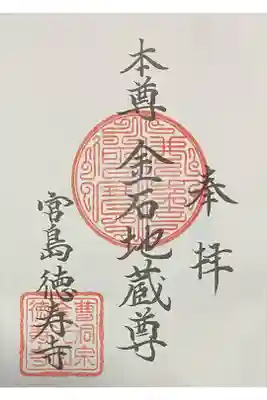 奉拝
本尊 金石地蔵尊
宮島 徳寿寺
曹洞宗